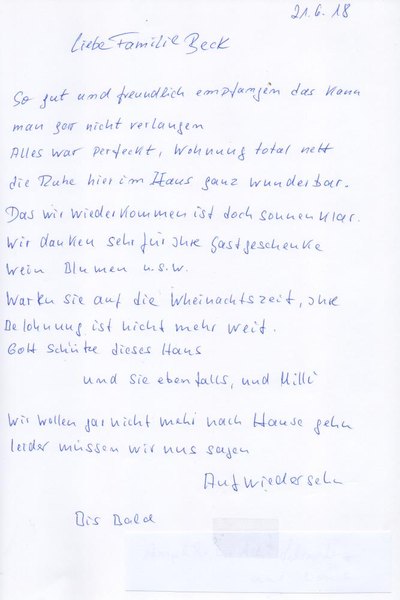 21.6.18
Liebe Familie Beck
So gut und freundlich empfangen das kann
man gar nicht verlangen
Alles war perfeckt, Wohnung total nett
die Ruhe hier im Haus ganz wunderbar.
Das wir wiederkommen ist doch sonnenklar.
Wir danken sehr für ihre Gastgeschenke
Wein Blumen u.s.w.
Warten sie auf die Wheinachtszeit, ihre
Belohnung ist nicht mehr weit.
Gott schütze dieses Haus
und sie ebenfalls, und Milli
Wir wollen gar nicht mehr nach Hause gehn
leider müssen wir uns sagen
Aufwiedersehn
Bis Bald